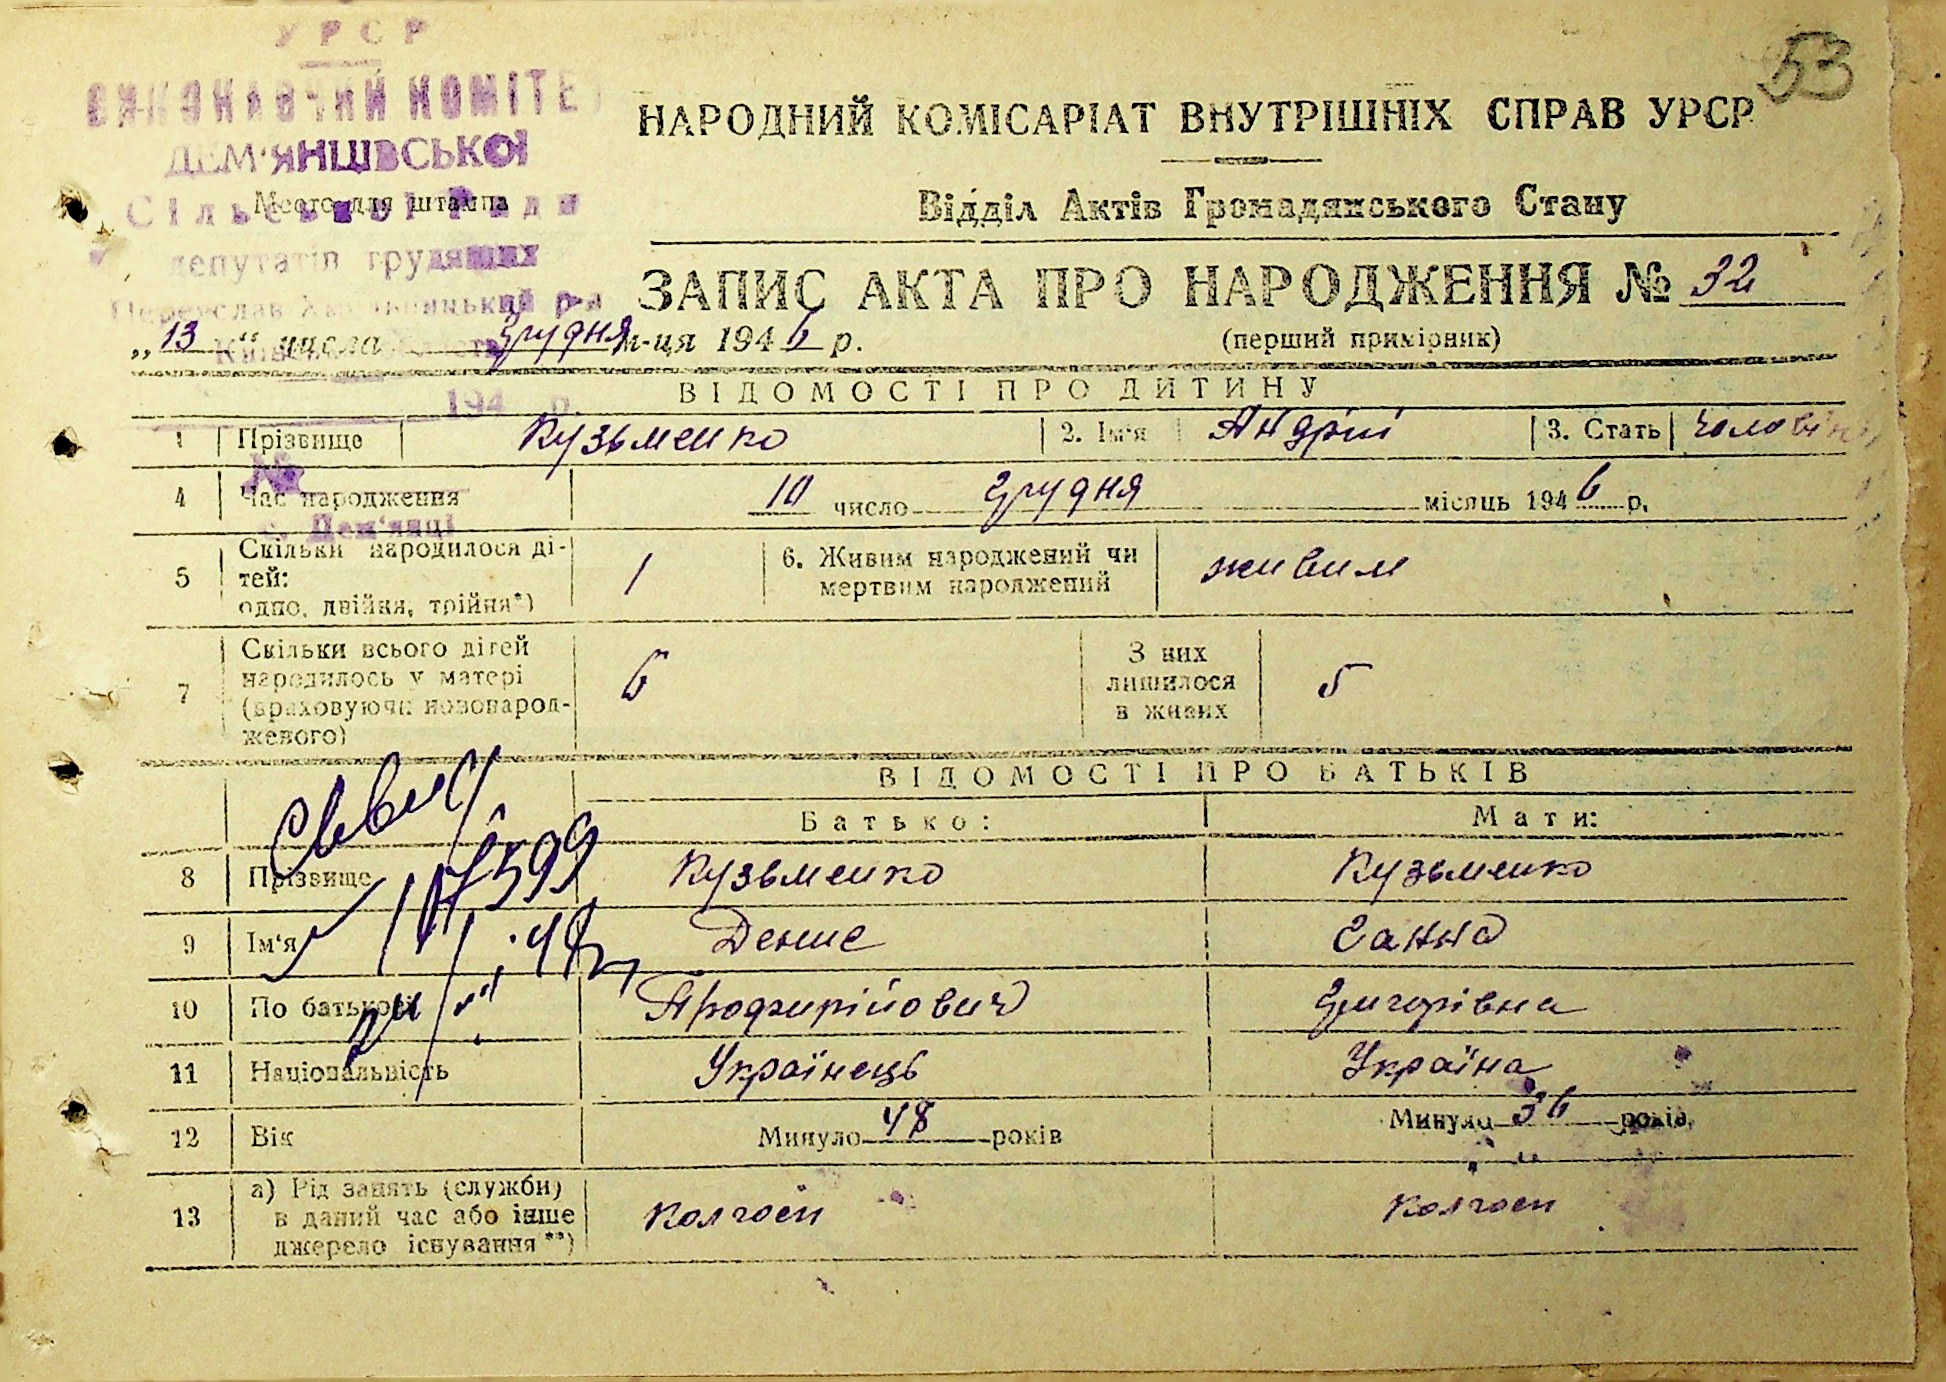 53
УРСР
ВИКОНАВЧИЙ КОМІТЕТ
ДЕМ'ЯНЦІВСЬКОЇ
Сільської Ради
депутатів трудящих
Переяслав Хмельницький р-н
Место для штампа
НАРОДНИЙ КОМІСАРІАТ ВНУТРІШНІХ СПРАВ УРСР
Відділ Актів Громадянського Стану
ЗАПИС АКТА ПРО НАРОДЖЕННЯ № 32
(перший примірник)
„13" числа грудня м-ця 1946 р.
194 р.
ВІДОМОСТІ ПРО ДИТИНУ
1 Прізвище Кузьменко 2. Ім'я Андрій 3. Стать чоловіч
№
4 Час народження 10 число грудня місяць 1946 р.
с. Дем'янці
5 Скільки народилося ді-
тей:
одно, двійня, трійня*) 1 6. Живим народжений чи
мертвим народжений живим
7 Скільки всього дітей
народилось у матері
(враховуючи новонарод-
женого) 6 З них
лишилося
в живих 5
ВІДОМОСТІ ПРО БАТЬКІВ
Батько: Мати:
8 Прізвище Кузьменко Кузьменко
9 Ім'я Денис Ганна
10 По батькові Профирійович Григорівна
11 Національність Українець Україна
12 Вік Минуло 48 років Минуло 36 років
13 а) Рід занять (служби)
в даний час або інше
джерело існування**) Колгосп Колгосп